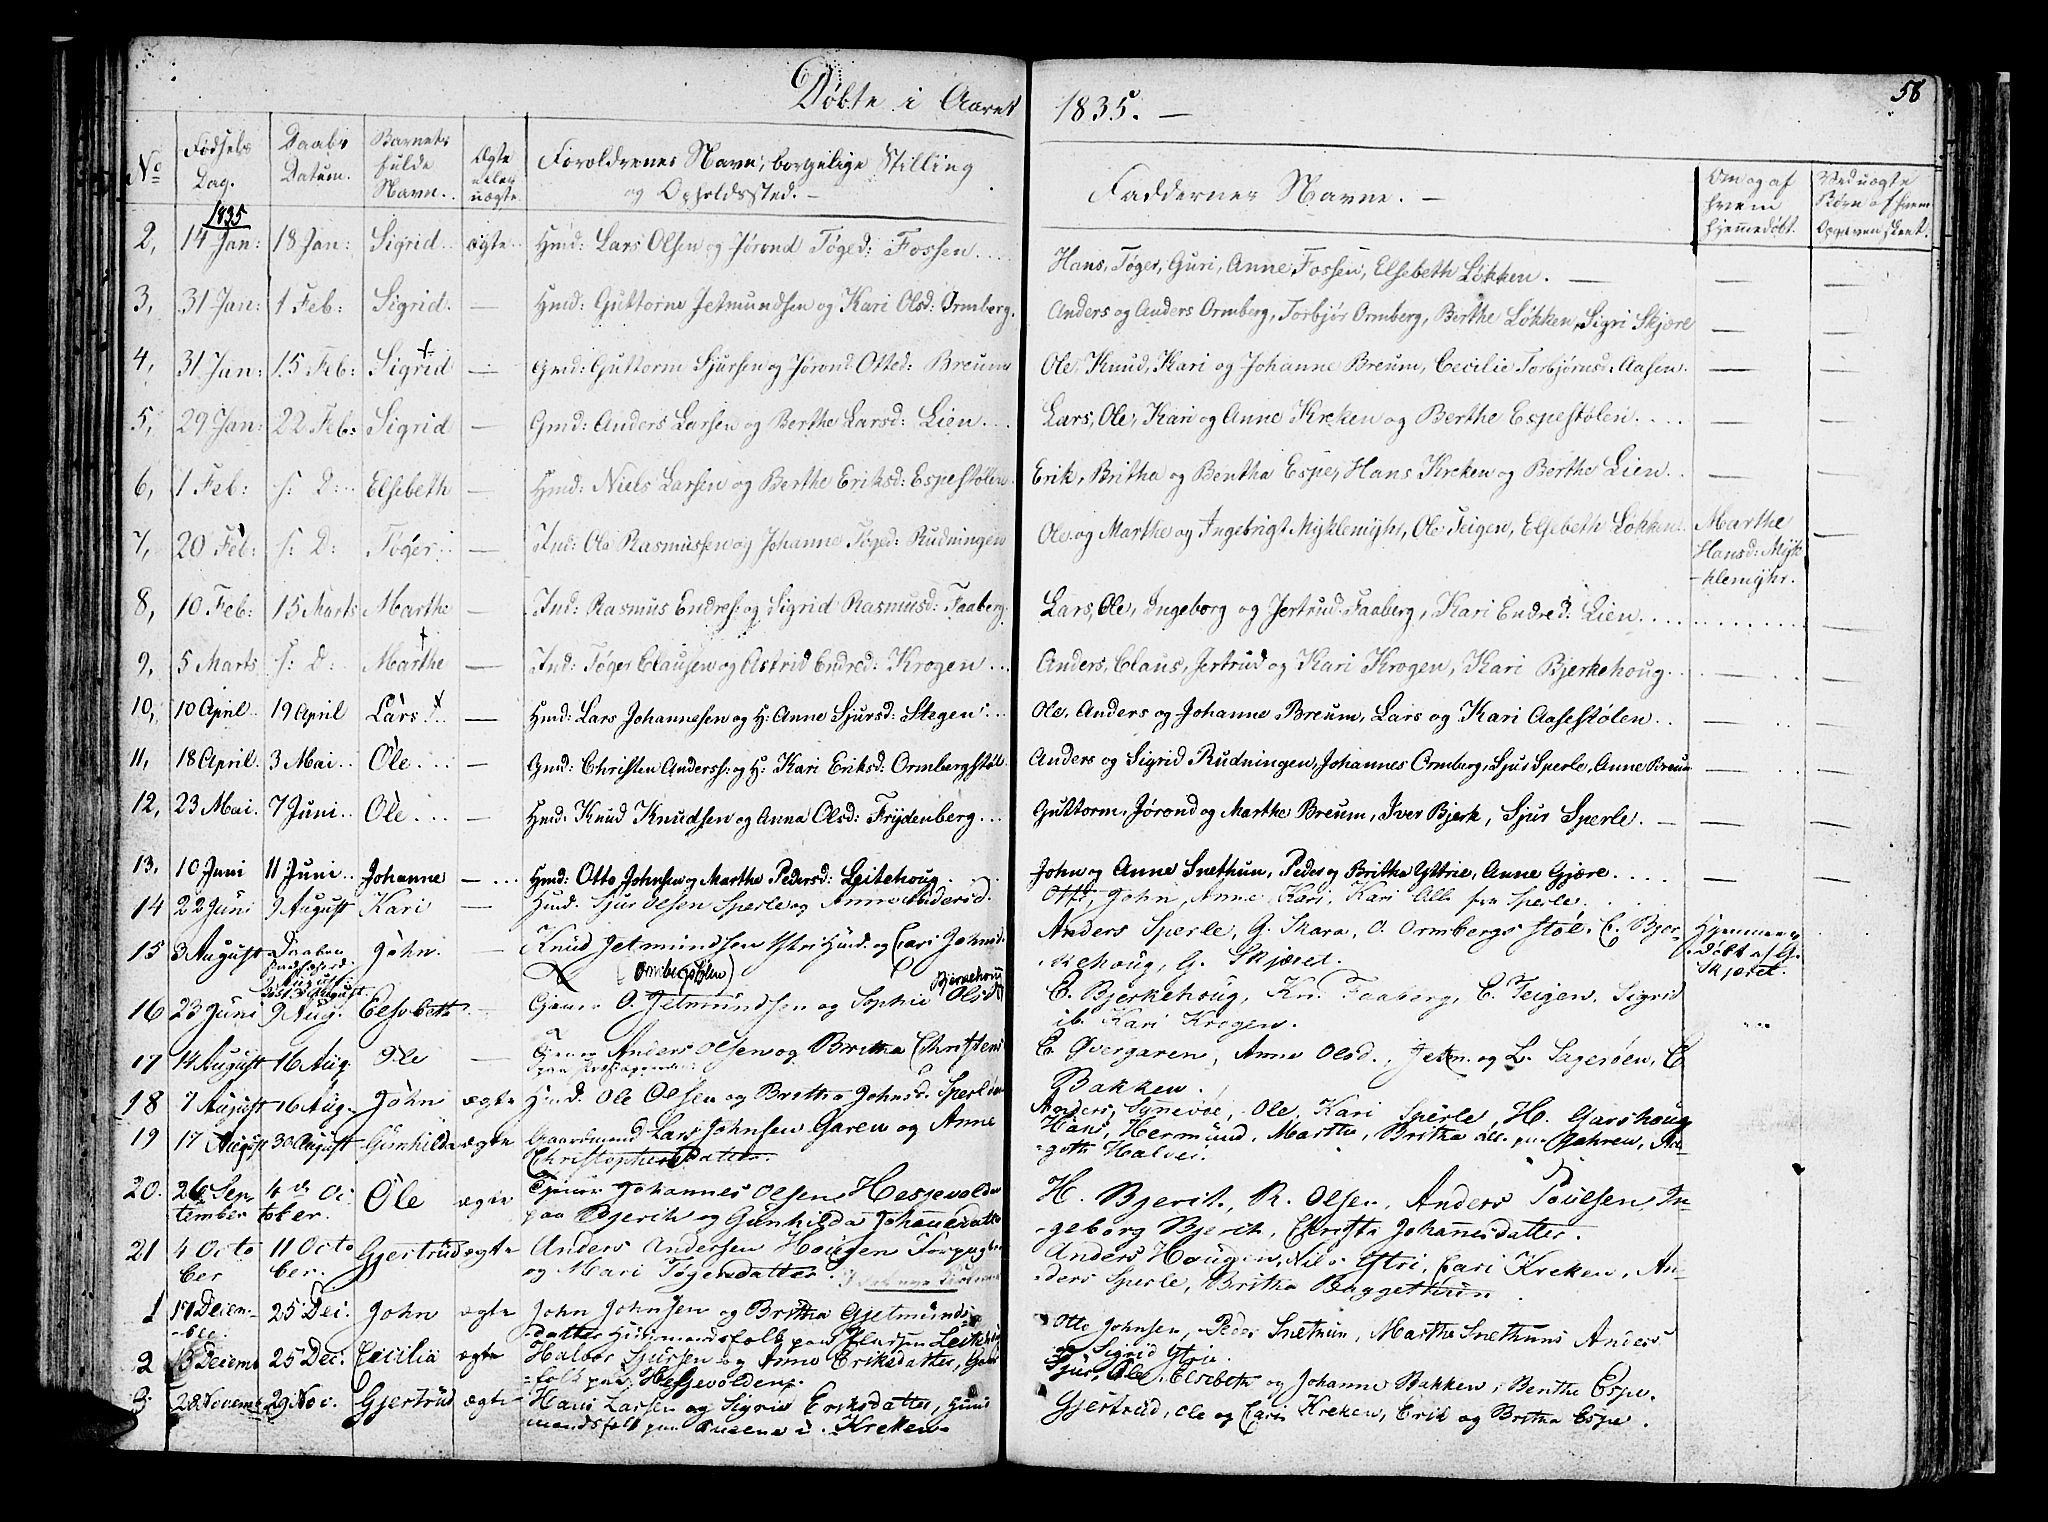 Døbte i Aaret 1835. —
58
No
Fødsels Dag.
Daabs Datum.
Barnets fulde Navn.
Ægte eller uægte.
Forældrenes Navn, borgelige Stilling og Opholdssted. —
Faddernes Navne. —
Om og af hvem hjemmedøbt.
Ved uægte Børn af hvem Opgaven skeet.
1835
2, 14 Jan: 18 Jan: Sigrid ægte Hmd: Lars Olsen og Jørond Tøged: Fossen Hans, Tøger, Guri, Anne Fossen, Elsebeth Løkken. — — —
3, 31 Jan: 1 Feb: Sigrid. — Hmd: Guttorm Jetmundsen og Kari Olsd: Ormberg. Anders og Anders Ormberg, Torbjør Ormberg, Berthe Løkken, Sigri Skjøre — —
4, 31 Jan: 15 Feb: Sigrid — Gmd: Guttorm Sjursen og Jørond Otted: Breum Ole, Knud, Kari og Johanne Breum, Cecilie Torbjørnsd. Aasen. — —
5, 29 Jan: 22 Feb: Sigrid — Gmd: Anders Larsen og Berthe Larsd: Lien Lars, Ole, Kari og Anne Kreken og Berthe Espestølen — —
6, 1 Feb: s: D: Elsebeth — Hmd: Niels Larsen og Berthe Eriksd: Espestølen Erik, Britha og Bentha Espe, Hans Kreken og Berthe Lien — —
7, 20 Feb: s: D: Tøger — Ind: Ole Rasmussen og Johanne Tøged: Rudningen Ole og Marthe og Ingebrigt Myklemyhr, Ole Teigen, Elsebeth Løkken Marthe —
Hansd: Myk-
-klemyhr.
8, 10 Feb: 15 Marts Marthe — Ind: Rasmus Endres: og Sigrid Rasmusd: Faaberg. Lars, Ole, Ingeborg og Jertrud Faaberg, Kari Endred: Lien —
9, 5 Marts s: D: Marthe — Ind: Tøger Clausen og Astrid Endred: Krogen Anders, Claus, Jertrud og Kari Krogen, Kari Bjerkehoug — —
10, 10 April 19 April Lars — Hmd: Lars Johannesen og H: Anne Sjursd: Stegen Ole, Anders og Johanne Breum, Lars og Kari Aasestølen — —
11, 18 April 3 Mai Ole — Gmd: Christen Anderss: og H: Kari Eriksd: Ormbergstøl. Anders og Sigrid Rudningen, Johannes Ormberg, Sjur Sperle, Anne Breum — —
12, 23 Mai 7 Juni Ole — Hmd: Knud Knudsen og Anna Olsd: Frydenberg Guttorm, Jørond og Marthe Breum, Iver Bjerk, Sjur Sperle. — — —
13, 10 Juni 11 Juni Johanne — Hmd: Otto Johnsen og Marthe Pedersd: Leitehoug John og Anne Snethun, Peder og Britha Yttrie, Anne Gjøre — —
14 22 Juni 9 August Kari — Hmd. Sjur Olsen Sperle og Anne Andersd. Otto, John, Anne, Kari, Kari Alle fra Sperle.
15 3 August John — Knud Jetmundsen Ytri Hmd. og Cari Johnsd. Anders Sperle, G. Skara, O. Ormbergstøl, C. Bjer- Hjemme
-kehoug, G. Skjæret. Døbt af G. Skjæret.
(Ormbergstølen) Bjerkehoug
16 23 Juni 9 Aug. Elsebeth — O. Jetmundsen og Sophie Olsd. C. Bjerkehoug, Kn. Faaberg, C. Teigen, Sigrid
ib. Kari Krogen.
17 14 August 16 Aug. Ole — Anders Olsen og Britha Christens C. Øvergaren, Anne Olsd., Jetm. og L. Sagerøen, C
Bakken.
18 7 August 16 Aug. John ægte Hmd. Ole Olsen og Britha Johnsd. Sperle Anders, Synevøe, Ole, Kari Sperle, H. Garshoug
19 17 August 30 August Gunhilda ægte Gaardmand Lars Johnsen Garen og Anne Hans, Hermund, Martha, Britha alle paa Gahren, An-
Christophersdatter. -gothe Halvei.
20. 26 September 4de October Ole ægte Johannes Olsen Hesjevolden H. Bjerik, R. Olsen, Anders Poulsen, In-
paa Bjerik og Gunhilda Johannesdatter -geborg Bjerik, Christi Johanesdatter.
21 4 October 11 October Gjertrud ægte Anders Andersen Hougen Forpagter Anders Hougen, Nils Ytri, Cari Kreken, An-
og Mari Tøgersdatter. -ders Sperle, Britha Baggethun.
1 17 Decem-ber. 25 Dec. John ægte John Johnsen og Britha Gjetmunds- Otto Johnsen, Peder Snetun, Martha Snethuns Anders
-datter Huusmandsfolk paa og Sigrid Ytrie.
2 13 Decemb 25 Dec. Cecilia ægte Halvor Sjursen og Anne Eriksdatter, Sjur, Ole, Elsebeth og Johanne Bakken, Benthe Espe.
-folk paa Hesjevolden.
3. 28 Novemb 29 Nov. Gjertrud ægte Hans Larsen og Sigrid Eriksdatter, Huus Gjertrud, Ole og Cari Kreken, Erik og Britha Espe.
mandsfolk paa Kreken.